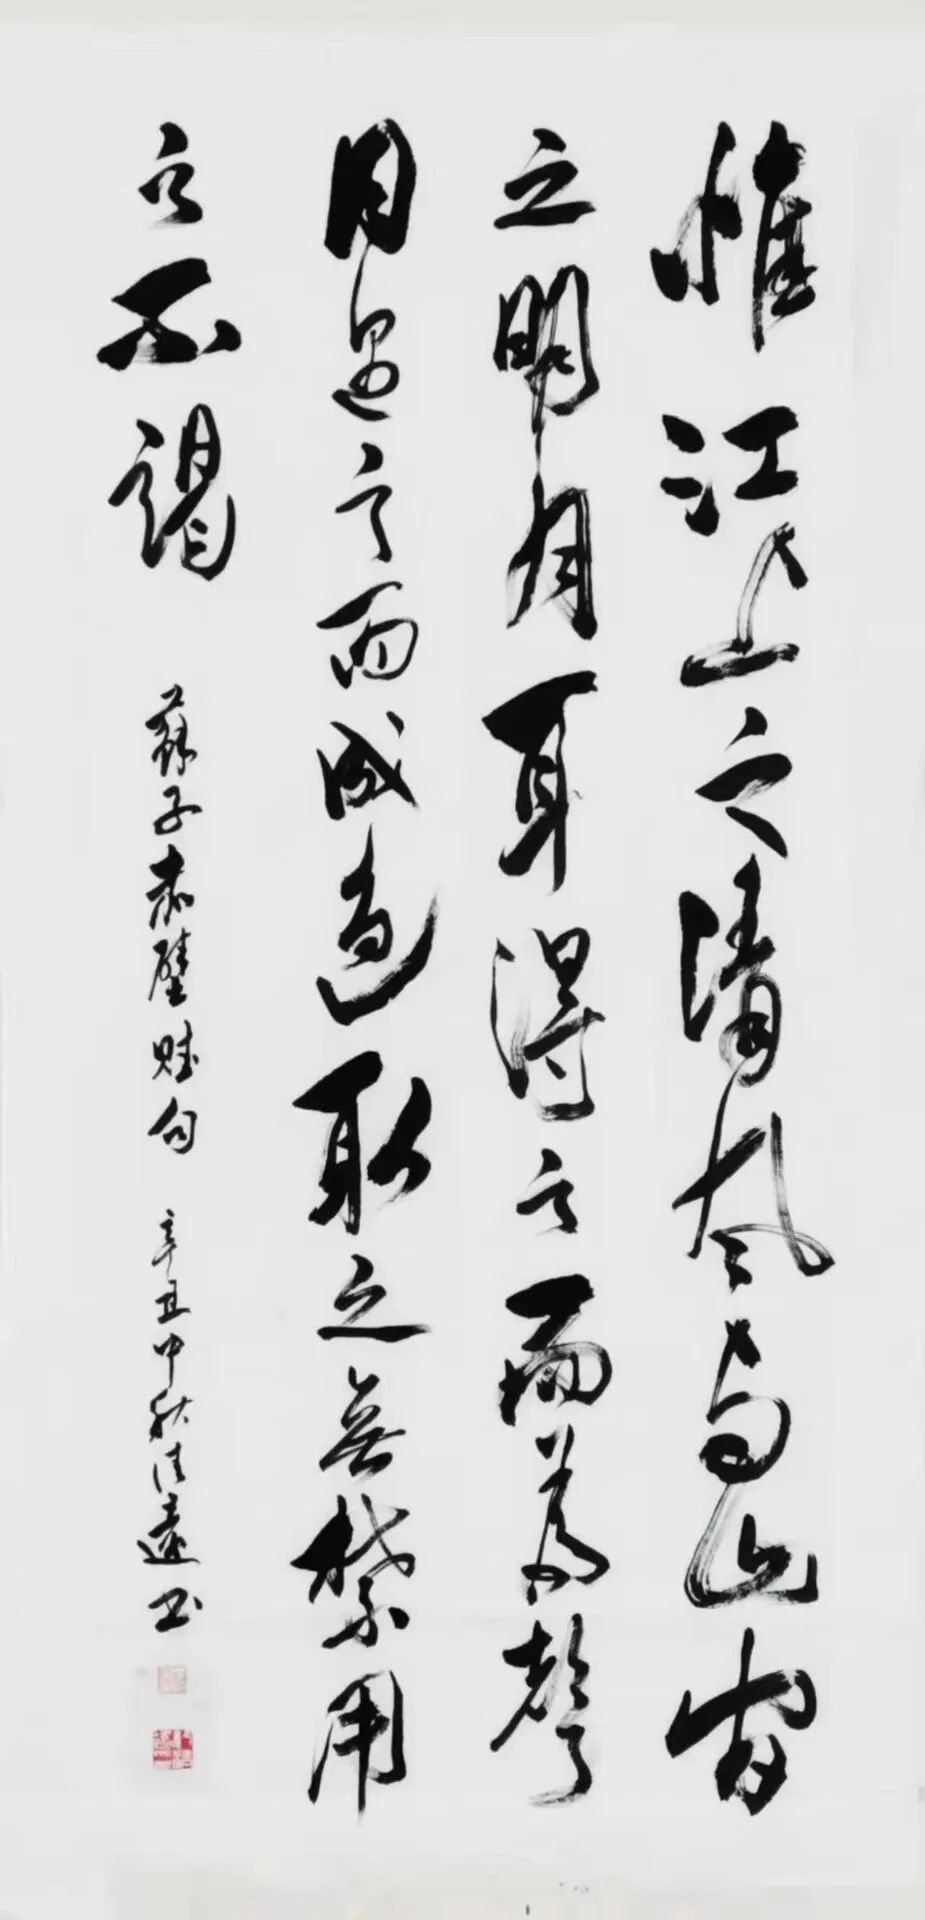 惟江上之清风与山間
之明月耳得之而為聲
目遇之而成色取之無禁用
之不竭
蘇子赤壁賦句 辛丑中秋佳遠书